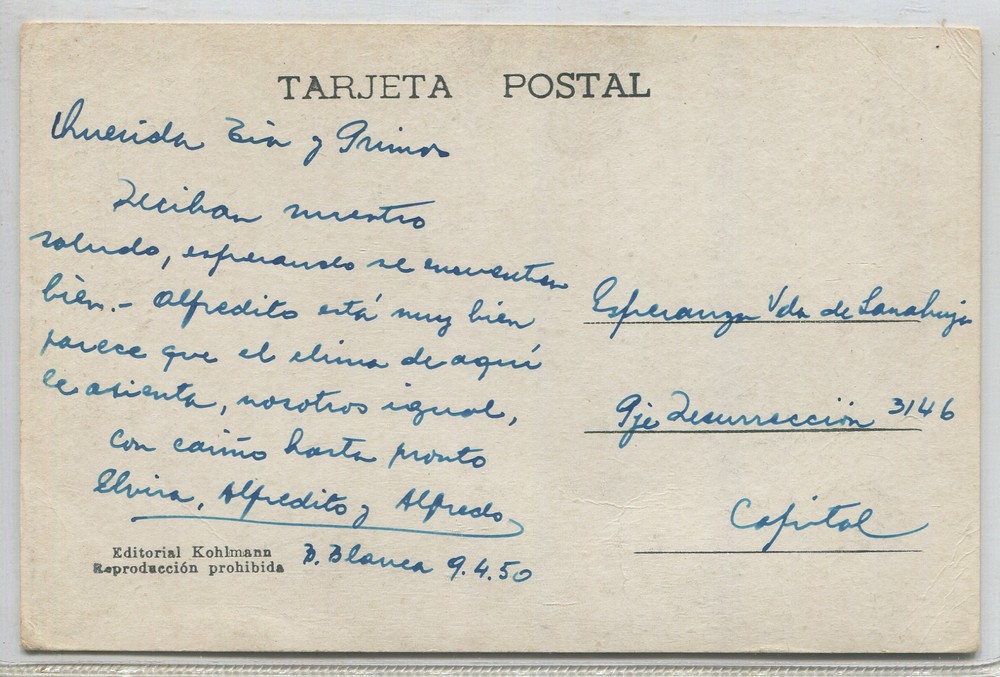 TARJETA POSTAL
Querida Tia y Primos
Reciban nuestro
saludo, esperando se encuentren
bien.- Alfredito está muy bien
parece que el clima de aquí
le asienta, nosotros igual,
con cariño hasta pronto
Elvira, Alfredito y Alfredo
B. Blanca 9.4.50
Editorial Kohlmann
Reproducción prohibida
Esperanza Vda de Lanahuja
Pje Resurrección 3146
Capital